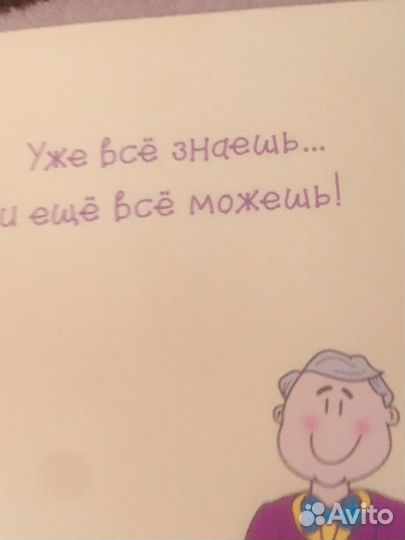 Уже всё знаешь...
и ещё всё можешь!
Avito